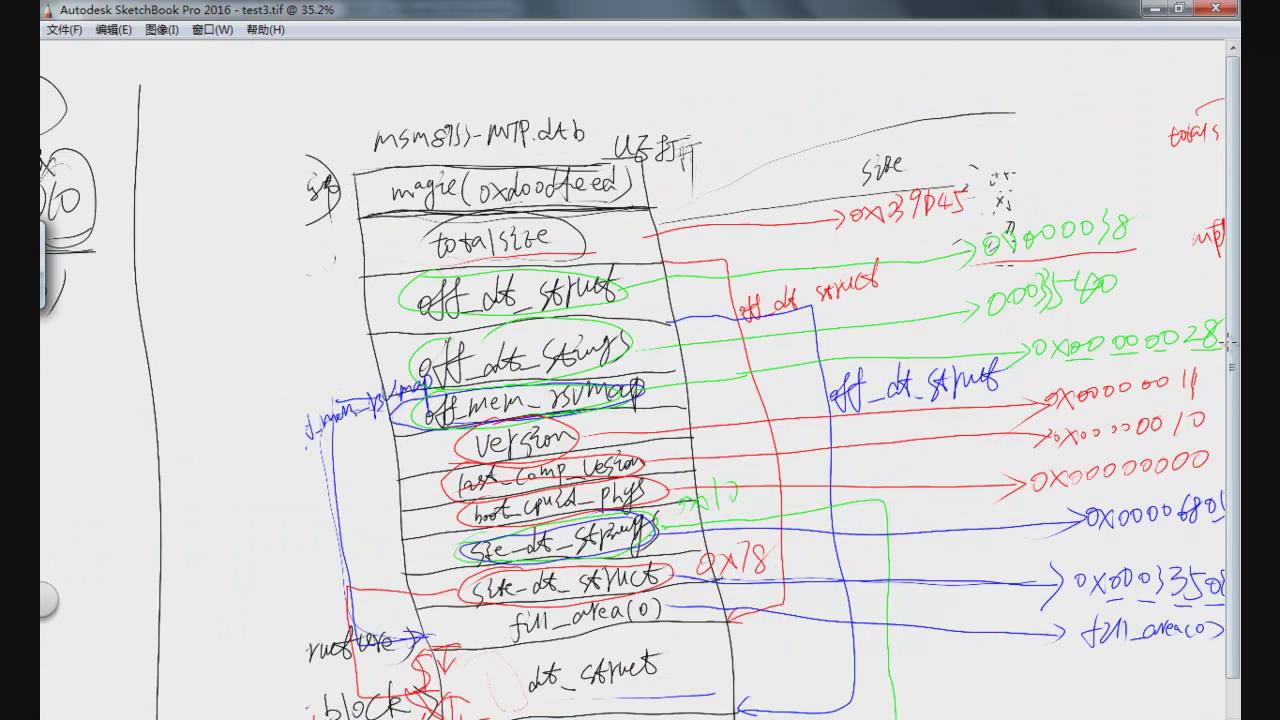 Autodesk SketchBook Pro 2016 - test3.tif @ 35.2%
文件(F) 编辑(E) 图像(I) 窗口(W) 帮助(H)
msm8953-MTP.dtb
UE打开
size
magic(0xd00dfeed)
totals
totalsize
0x39D45
off_dt_struct
0x000038
off_dt_struct
off_dt_strings
off_mem_rsvmap
0x00000028
off_dt_struct
version
0x00000011
last_comp_version
0x00000010
boot_cpuid_phys
0x00000000
0x10
size_dt_strings
size_dt_struct
0x78
fill_area(0)
fill_area(0)
dt_struct
block